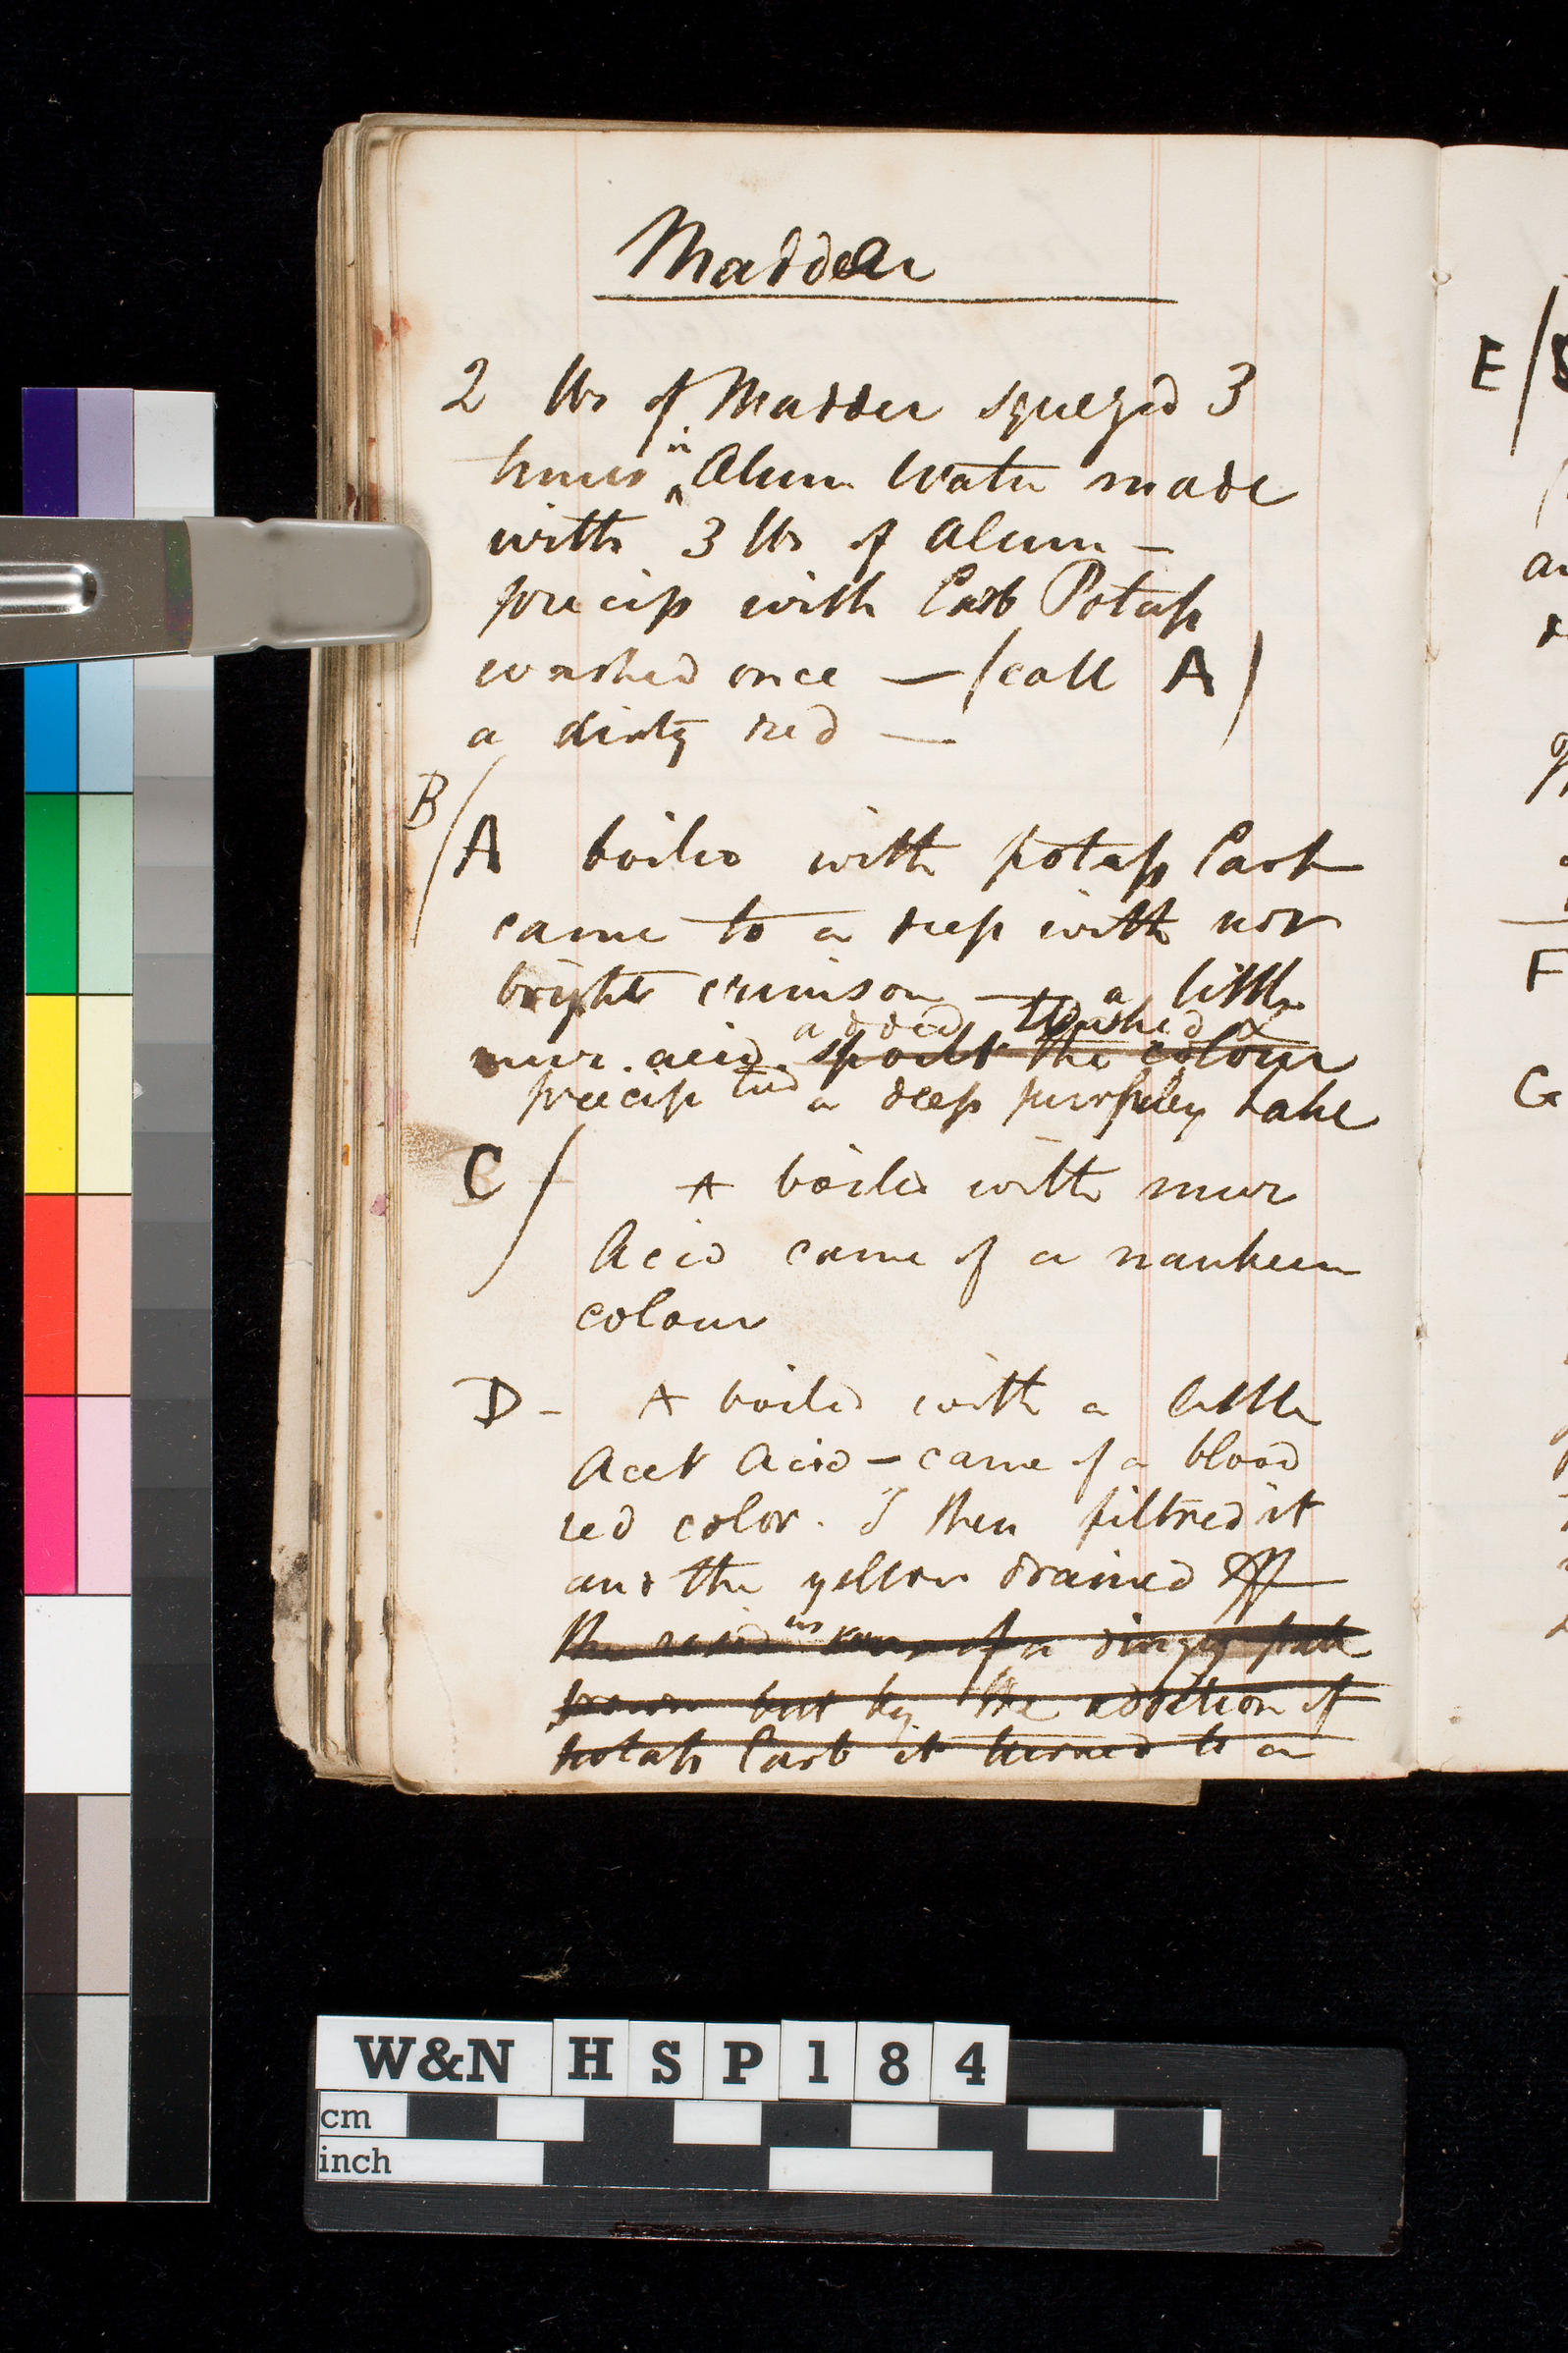 Madder
2 lbs of Madder squezed 3
times in Alum Water made
with 3 lbs of Alum —
precip with Carb Potass
washed once — (call A)
a dirty red —
B/ A boiled with potass Carb
came to a deep with not
bright crimson — a little
added washed &
mur. acid spoilt the colour
precip ted a deep purpley Lake
C/ A boiled with mur
Acid came of a nankeen
colour
D - A boiled with a little
Acet Acid - came of a blood
red color. I then filtred it
and the yellow drained off
the resid us was of a dingy pale
brown but by the addition of
potass Carb it turned to a
E/
F
G
W&N HSP184
cm
inch